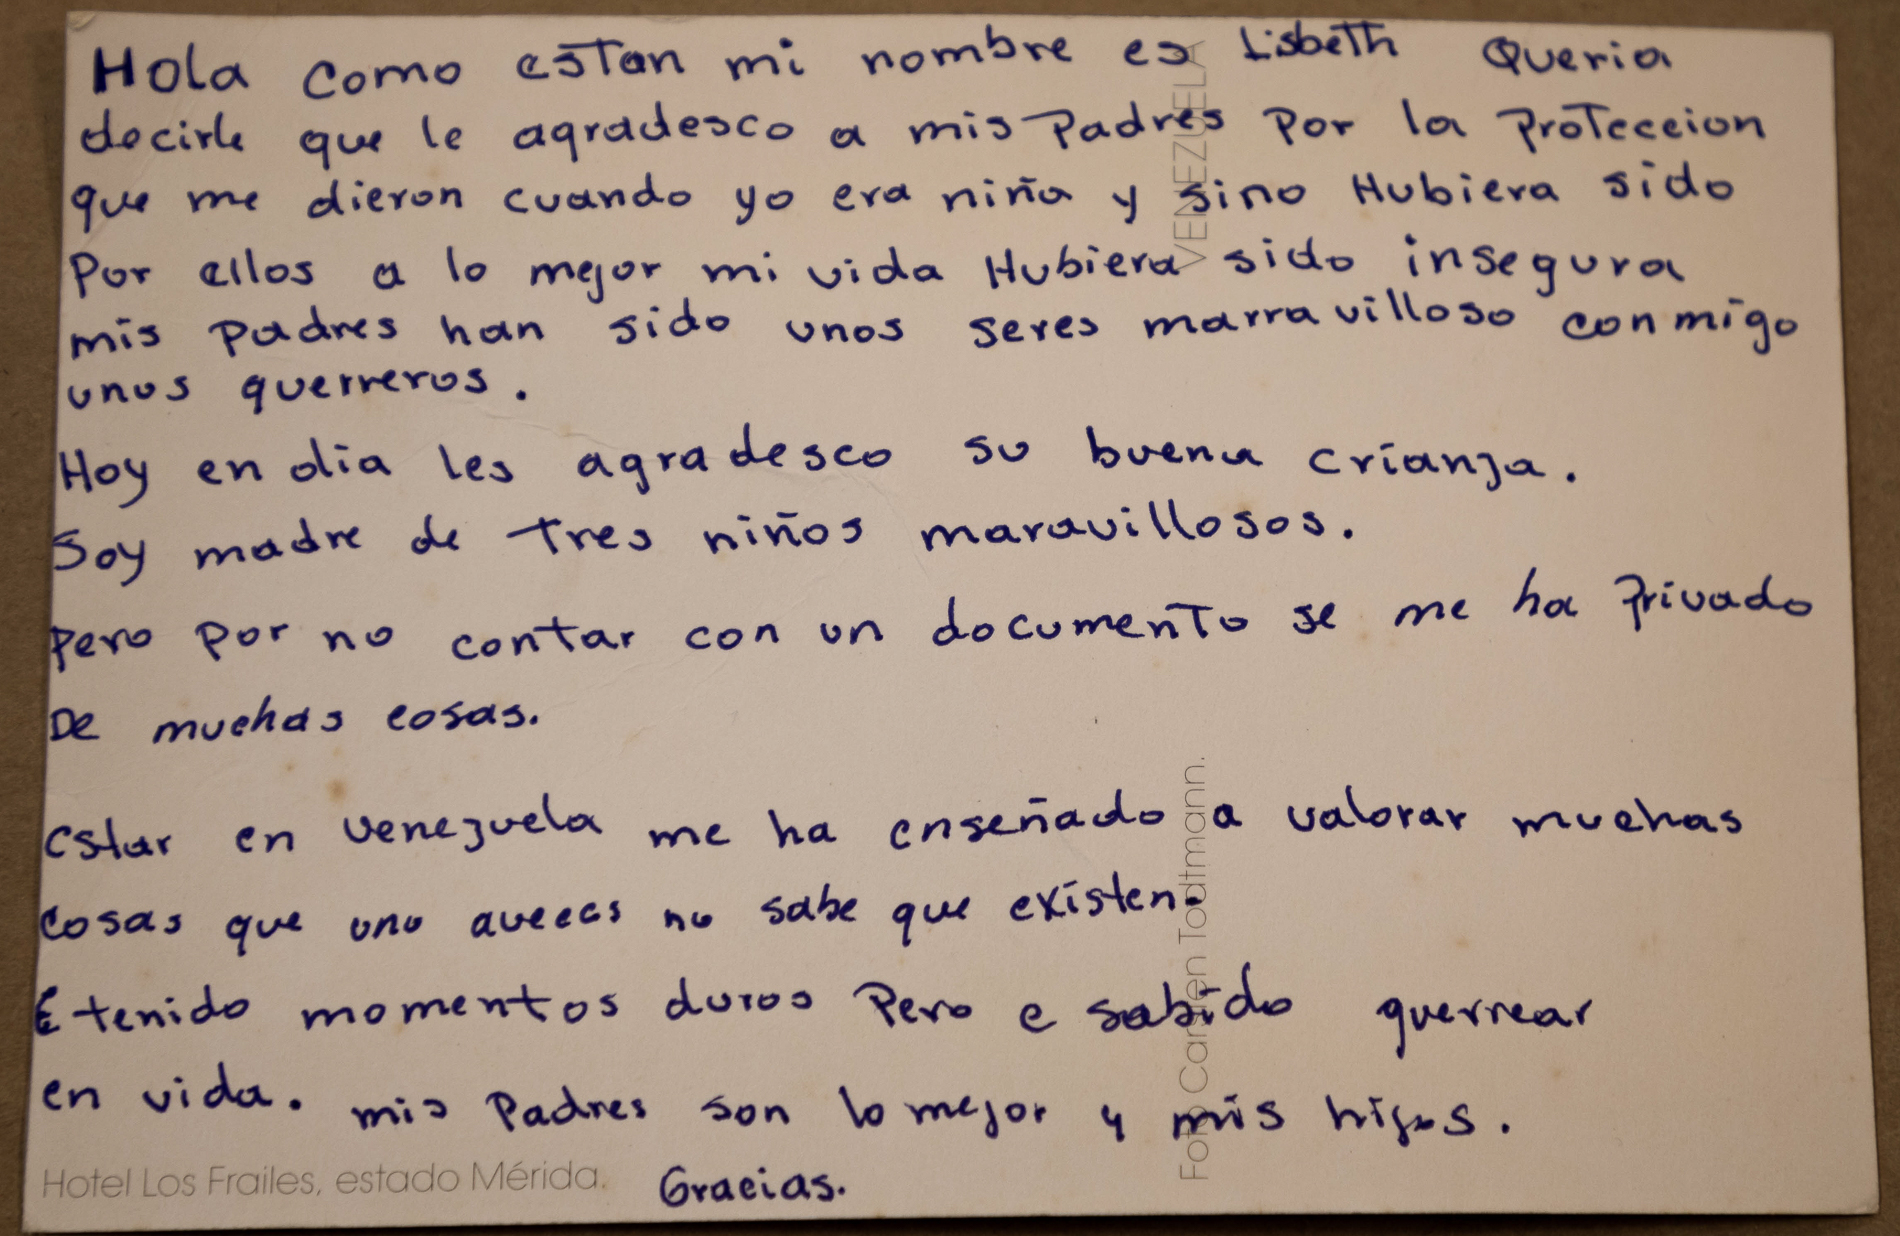 Hola como estan mi nombre es Lisbeth Queria
decirle que le agradesco a mis Padres Por la Proteccion
que me dieron cuando yo era niña y sino Hubiera sido
Por ellos a lo mejor mi vida Hubiera sido insegura
mis Padres han sido unos seres marravilloso conmigo
unos querreros.
Hoy en dia les agradesco su buena crianza.
Soy madre de tres niños maravillosos.
Pero Por no contar con un documento se me ha Privado
De muchas cosas.
Estar en Venezuela me ha enseñado a valorar muchas
cosas que uno aveces no sabe que existen.
E tenido momentos duros Pero e sabido querrear
en vida. mis Padres son lo mejor y mis hijos.
Gracias.
Hotel Los Frailes, estado Mérida.
VENEZUELA
Foto Carsten Todtmann.